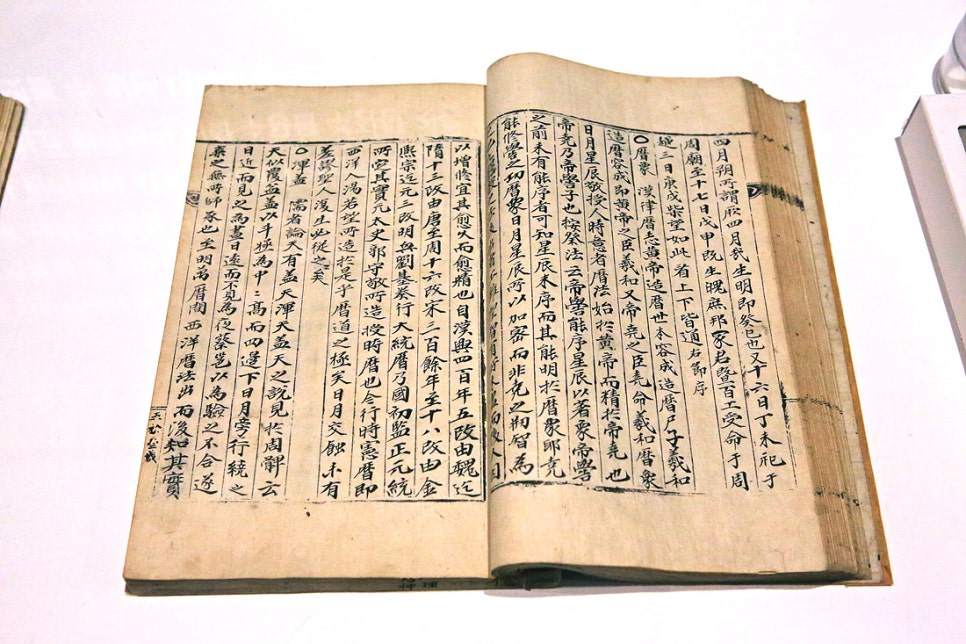 四月朔所謂厥四月哉生明即癸巳也又十六日丁未祀于
周廟至十七日戊申旣生魄庶邦冢君曁百工受命于周
越三日庚戌柴望如此看上下皆通右即序
○曆象 漢律曆志黄帝造曆世本容成造曆尸子羲和
造曆容成即黄帝之臣羲和又帝堯之臣堯命羲和曆象
日月星辰敬授人時意者曆法始於黄帝而精於帝堯也
帝堯乃帝嚳子也按祭法云帝嚳能序星辰以著象帝嚳
之前未有能序者可知星辰未序而其能明於曆象郎堯
能修嚳之功曆象日月星辰所以加密而非克之物智為
以增修宜其愈久而愈精也自漢興四百年五改由魏迄
隋十三改由唐至周十六改宋三百餘年至十八改由金
熙宗迄元三改明與劉基奏行大統曆乃國初監正元統
所定其實元太史郭守敬所造授時曆也今行時憲曆即
西洋人湯若望所造於是乎曆道之極矣日月交蝕未有
差謬聖人復生必從之矣
○渾蓋 儒者論天有盖天渾天盖天之說見於周髀云
天似覆盆盖以斗極為中中高而四邊下日月旁行繞之
日近而見之為晝日遠而不見為夜蔡邕以為驗之不合遂
棄之無所師承也至明萬曆間西洋曆法出而後知其實